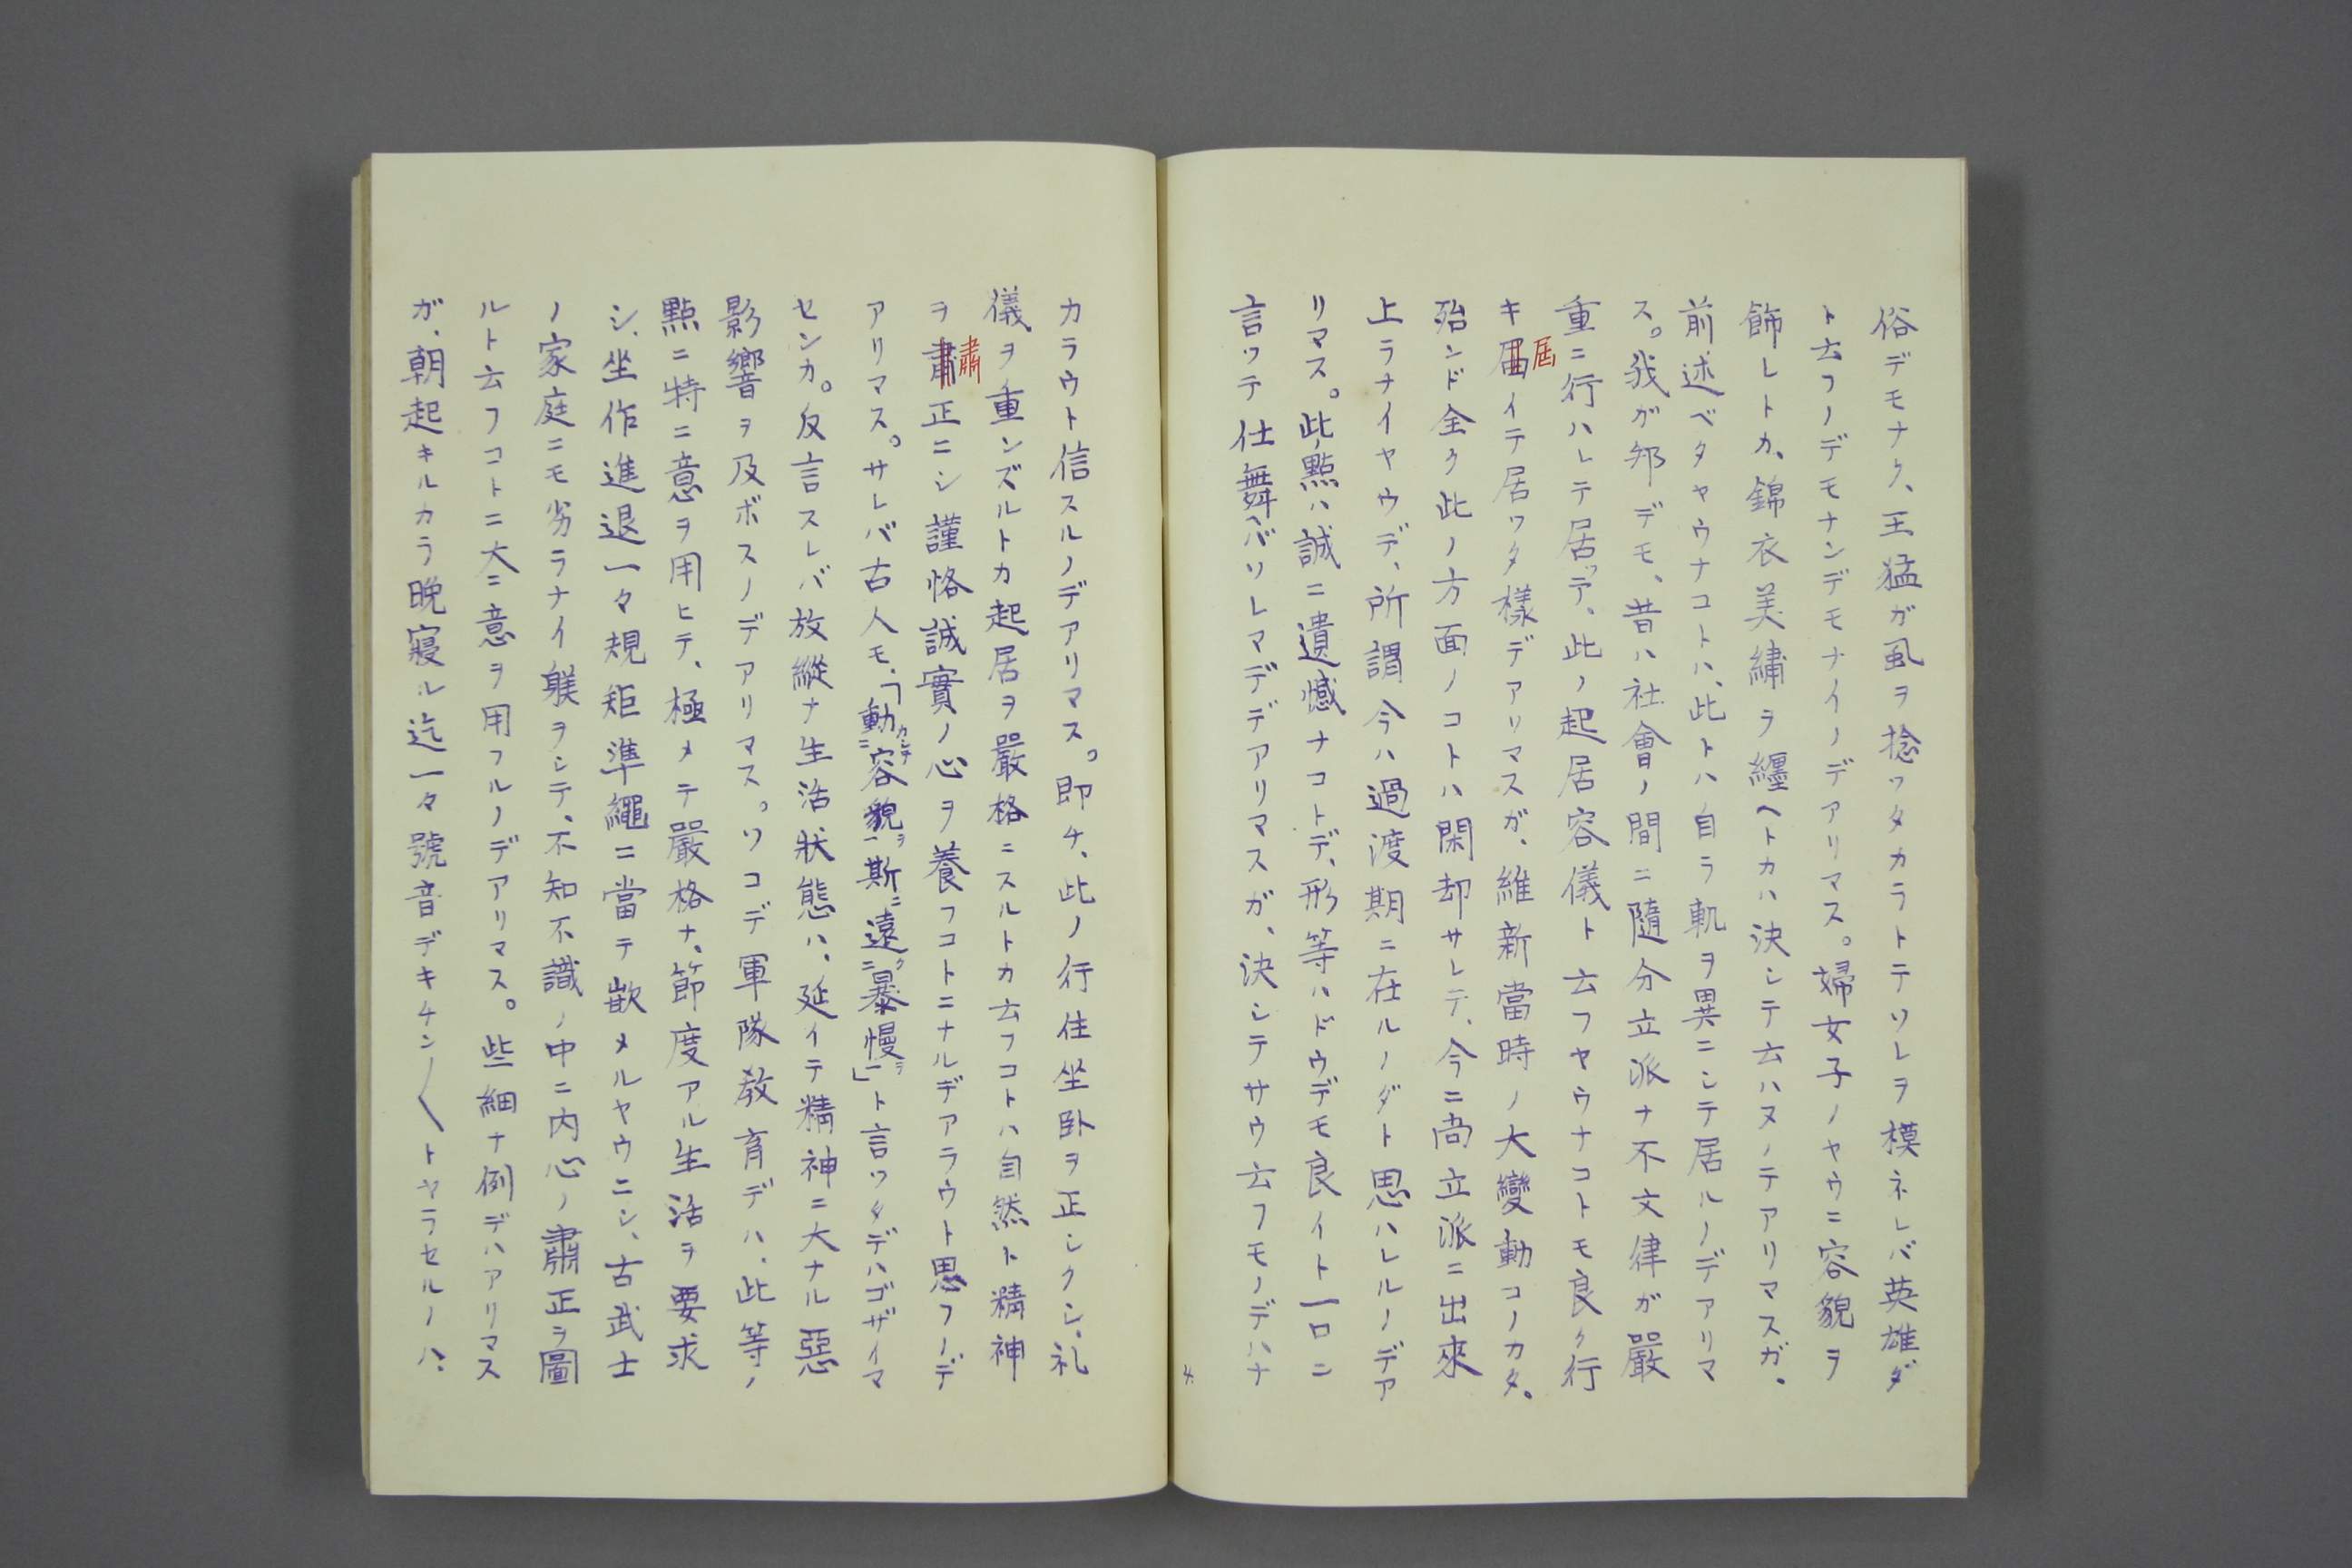 俗デモナク、王猛ガ虱ヲ捻ッタカラトテソレヲ模ネレバ英雄ダ
ト云フノデモナンデモナイノデアリマス。婦女子ノヤウニ容貌ヲ
飾レトカ、錦衣美繡ヲ纒ヘトカハ決シテ云ハヌノテアリマスガ、
前述ベタヤウナコトハ、此トハ自ラ軌ヲ異ニシテ居ルノデアリマ
ス。我ガ邦デモ、昔ハ社會ノ間ニ隨分立派ナ不文律ガ嚴
重ニ行ハレテ居ッテ、此ノ起居容儀ト云フヤウナコトモ良ク行
キ届イテ居ッタ樣デアリマスガ、維新當時ノ大變動コノカタ、
屆
殆ンド全ク此ノ方面ノコトハ閑却サレテ、今ニ尚立派ニ出來
上ラナイヤウデ、所謂今ハ過渡期ニ在ルノダト思ハレルノデア
リマス。此點ハ誠ニ遺憾ナコトデ、形等ハドウデモ良イト一口ニ
言ッテ仕舞ヘバソレマデデアリマスガ、決シテサウ云フモノデハナ
カラウト信スルノデアリマス。即チ、此ノ行住坐臥ヲ正シクシ、礼
儀ヲ重ンズルトカ起居ヲ嚴格ニスルトカ云フコトハ自然ト精神
ヲ肅正ニシ謹恪誠實ノ心ヲ養フコトニナルデアラウト思フノデ
肅
アリマス。サレバ古人モ、「動ニ容貌ヲ一斯ニ遠ニク暴慢ヲ一」ト言ッタデハゴザイマ
センカ。反言スレバ放縱ナ生活狀態ハ、延イテ精神ニ大ナル惡
影響ヲ及ボスノデアリマス。ソコデ軍隊教育デハ、此等ノ
點ニ特ニ意ヲ用ヒテ、極メテ嚴格ナ、節度アル生活ヲ要求
シ、坐作進退一々規矩準繩ニ當テ嵌メルヤウニシ、古武士
ノ家庭ニモ劣ラナイ躾ヲシテ、不知不識ノ中ニ内心ノ肅正ヲ圖
ルト云フコトニ大ニ意ヲ用フルノデアリマス。些細ナ例デハアリマス
ガ、朝起キルカラ晩寢ル迄一々號音デキチン〳〵トヤラセルノハ、